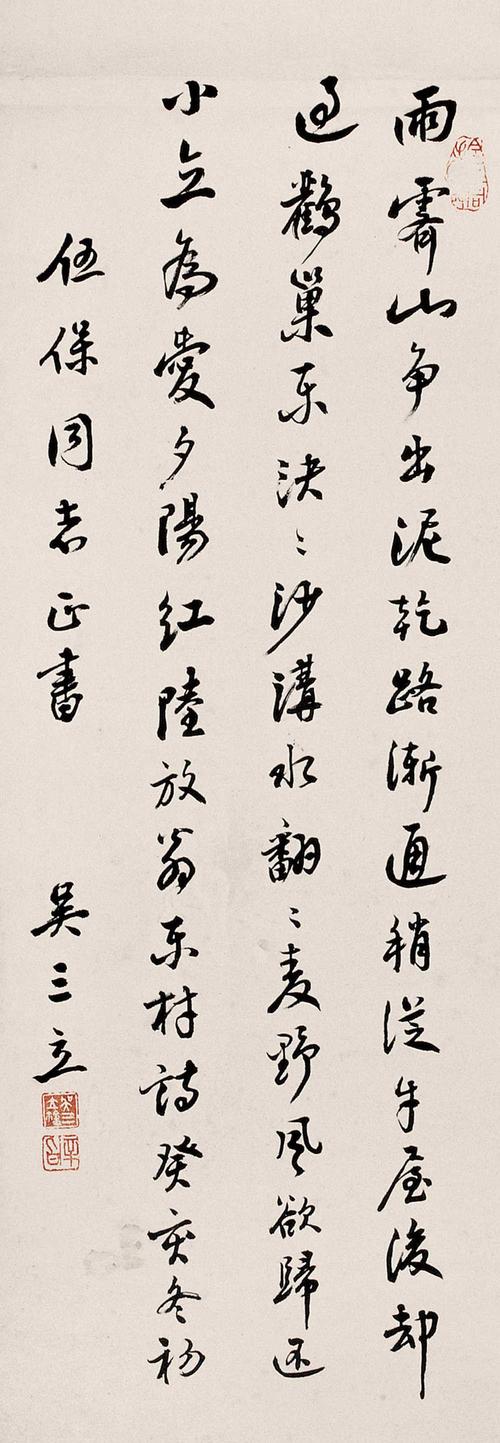 雨霽山争出泥乾路漸通稍從牛屋後却
過鸛巢东決〻沙溝水翻〻麦野风欲歸还
小立為愛夕陽红陸放翁东村詩癸亥冬初
伍保同志正書
吴三立